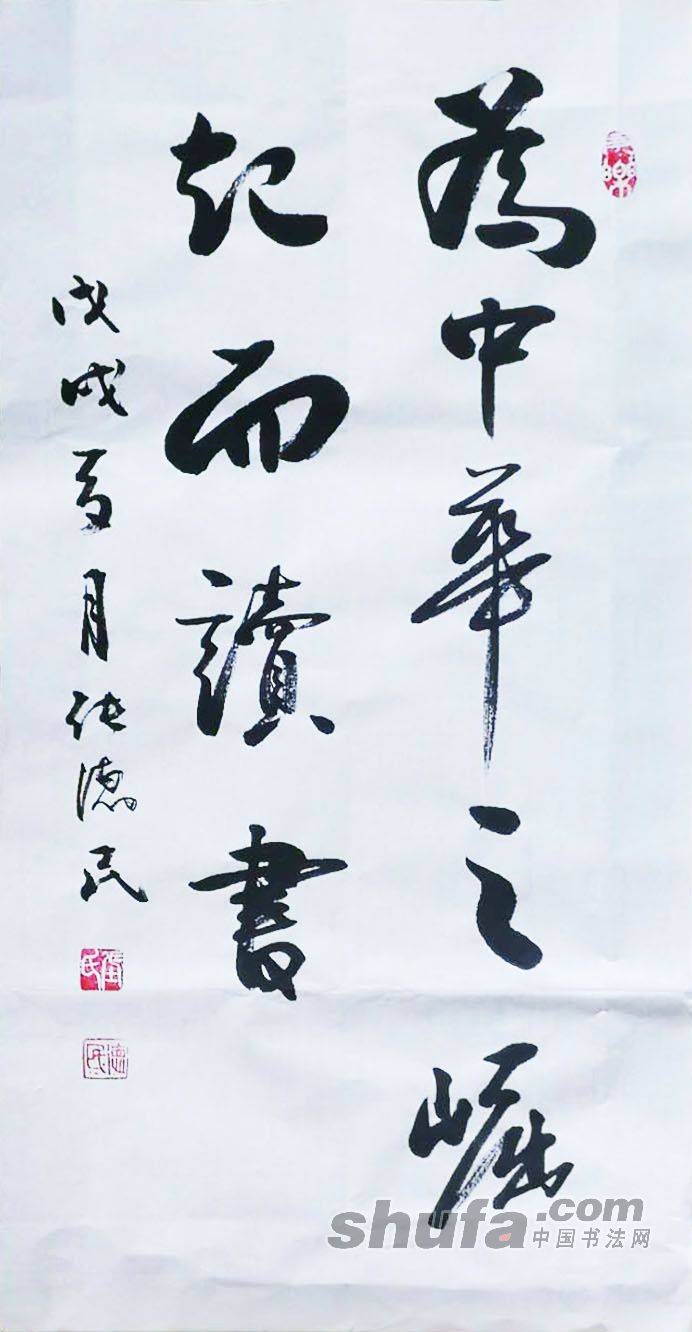 為中華之崛
起而讀書
戊戌夏月任德民
shufa.com
中国书法网